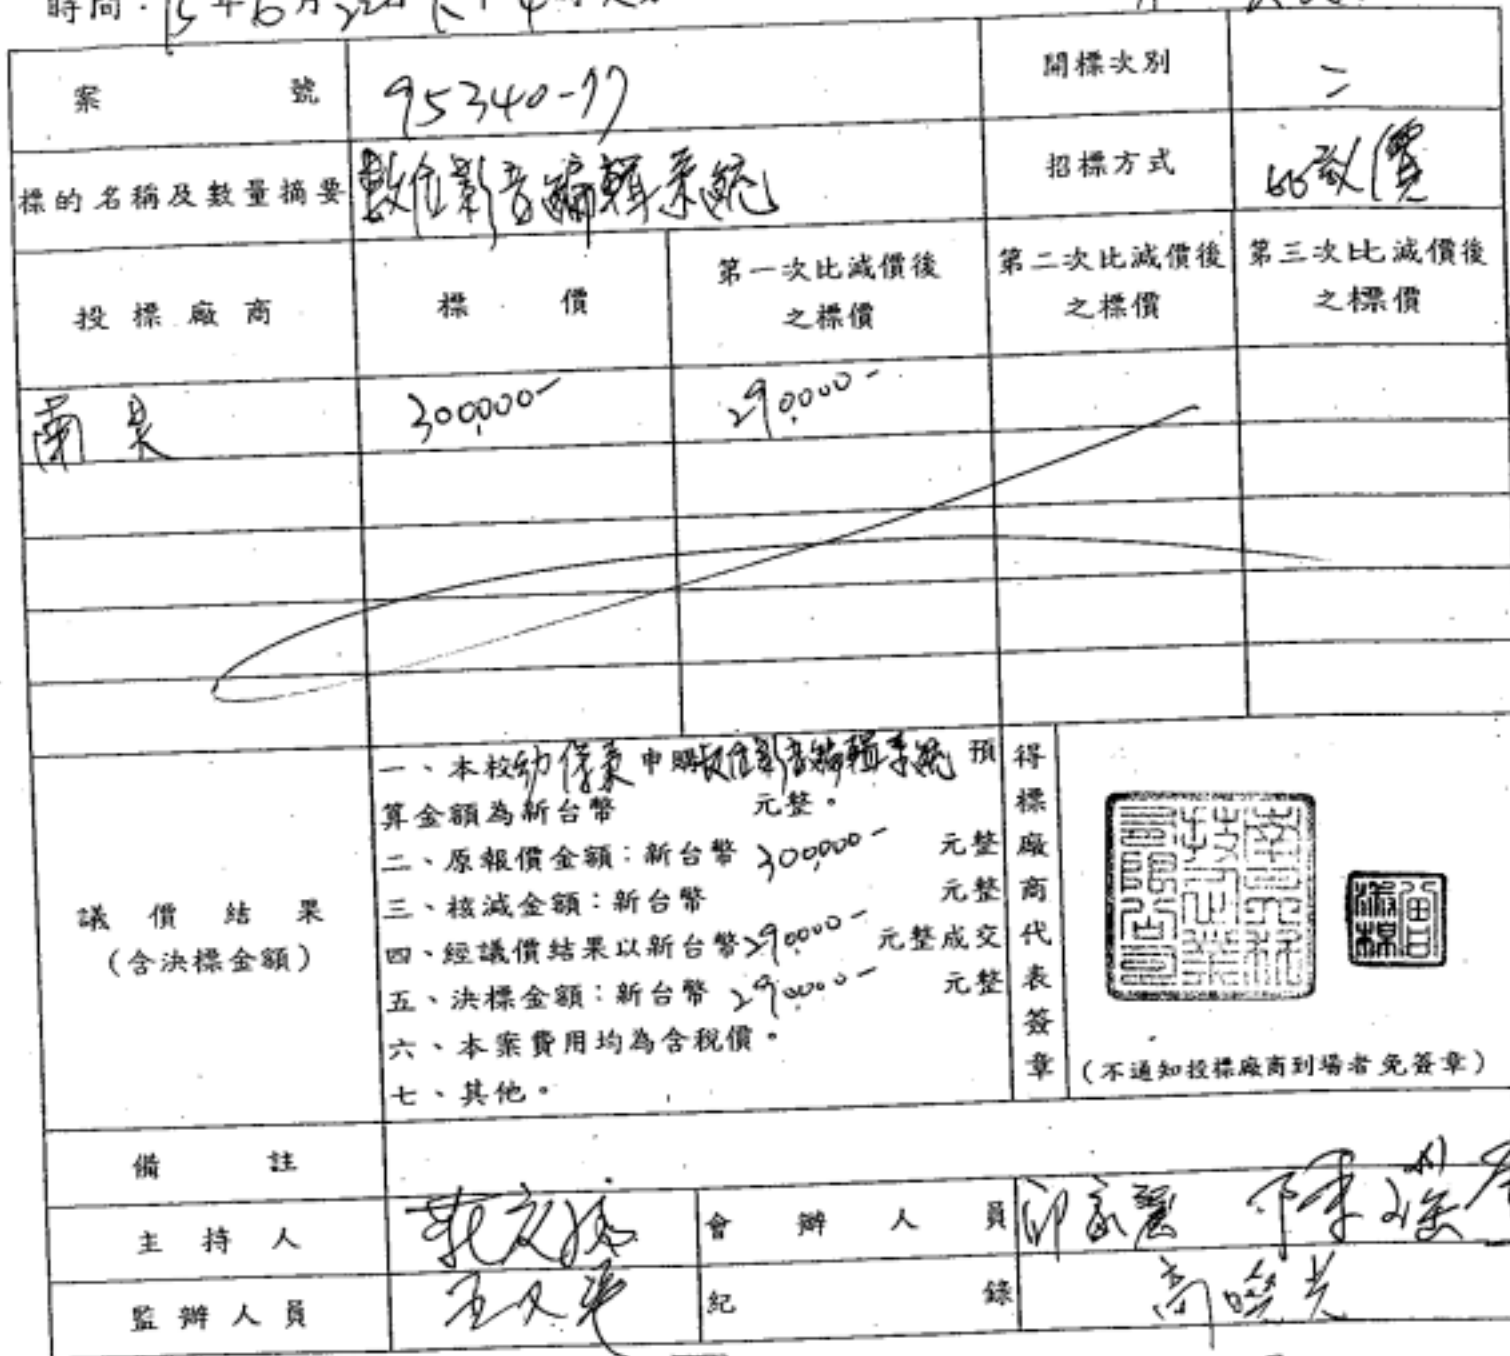 時間：95年6月22日下午4時
案號 95340-17 開標次別 二
標的名稱及數量摘要 數位影音編輯系統 招標方式 比議價
投標廠商 標價 第一次比減價後之標價 第二次比減價後之標價 第三次比減價後之標價
南 300,000- 290,000-
議價結果
(含決標金額)
一、本校幼保系申購數位影音編輯系統預
算金額為新台幣 元整。
二、原報價金額：新台幣 300,000- 元整
三、核減金額：新台幣 元整
四、經議價結果以新台幣290,000- 元整成交
五、決標金額：新台幣 290,000- 元整
六、本案費用均為含稅價。
七、其他。
得標廠商代表簽章
(不通知投標廠商到場者免簽章)
備註
主持人 會辦人員
監辦人員 紀錄